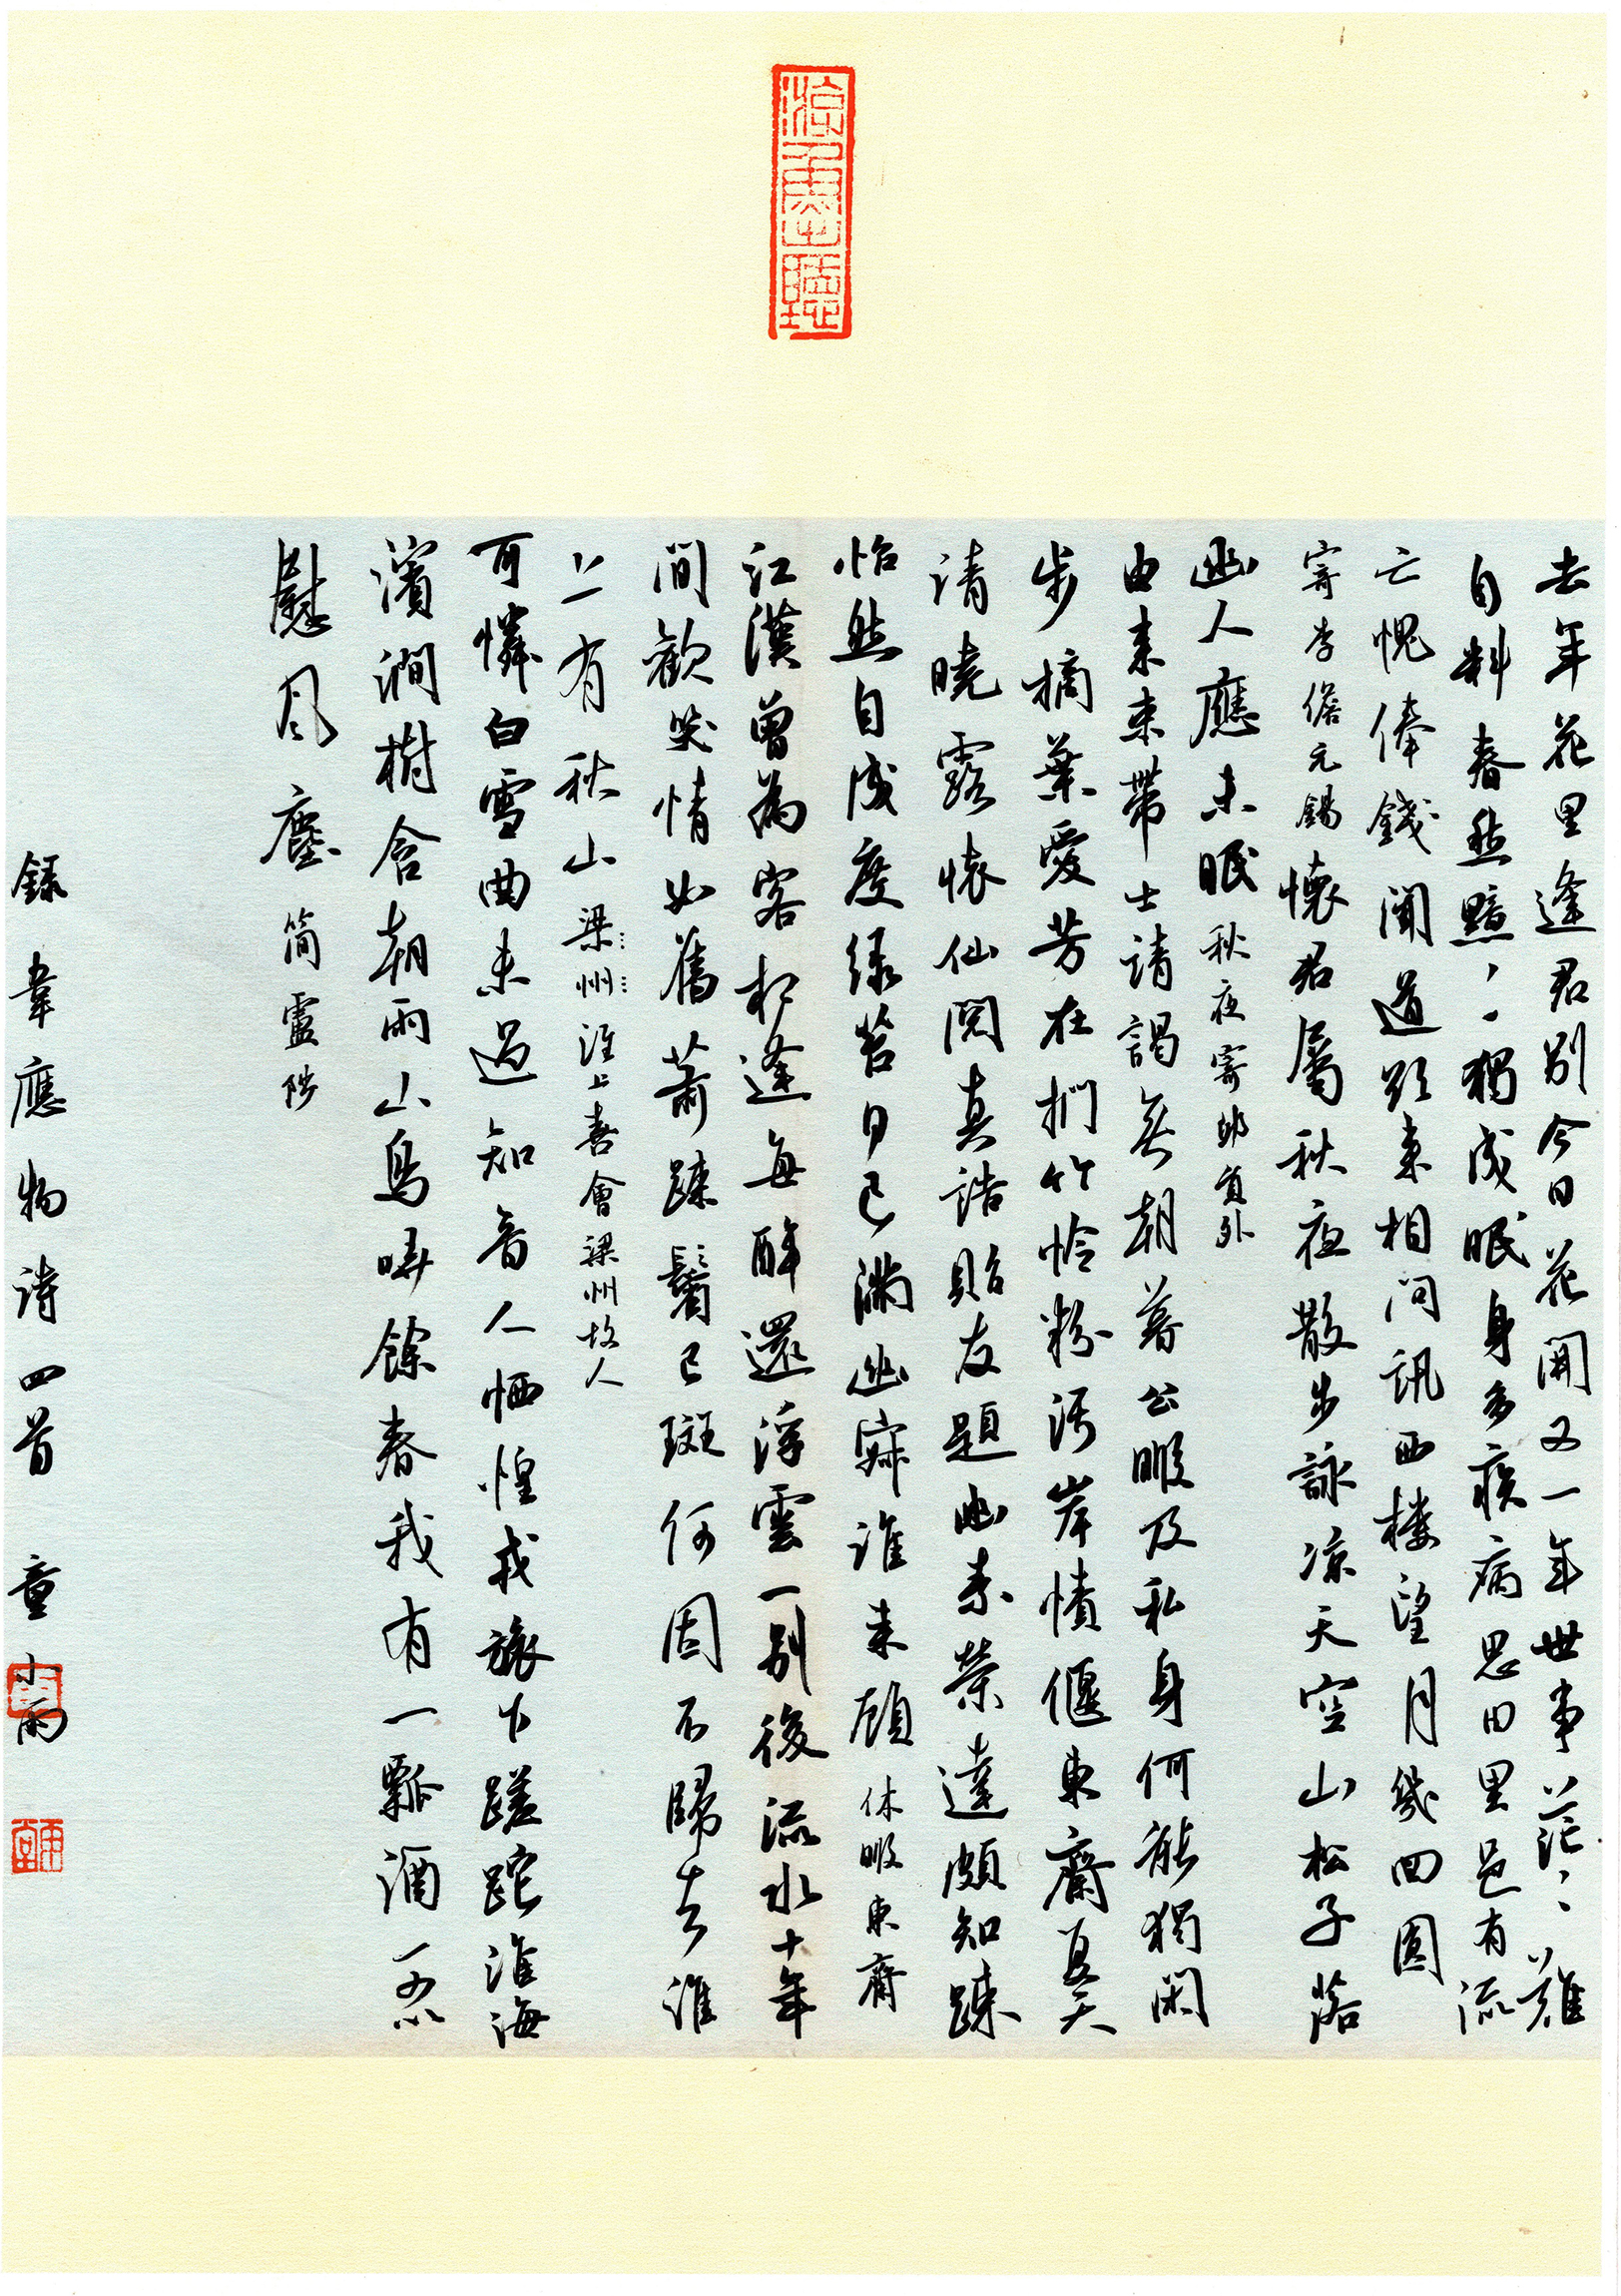 去年花里逢君别今日花開又一年世事茫〻難
自料春愁黯〻獨成眠身多疾病思田里邑有流
亡愧俸錢聞道欲来相问訊西樓望月幾回圆
寄李儋元錫懷君屬秋夜散步詠凉天空山松子落
幽人應未眠秋夜寄邱員外
由来束帶士請謁無朝暮公暇及私身何能獨闲
步摘葉愛芳在捫竹怜粉污岸幘偃東齋夏天
清曉露懷仙閲真誥貽友題幽素榮達頗知踈
怡然自成度绿苔日已满幽寂谁来顾休暇東齋
江漢曾為客相逢每醉還浮雲一别後流水十年
間歡笑情如舊蕭踈鬢已斑何因不歸去淮
上有秋山梁州淮上喜會梁州故人
可憐白雪曲未遇知音人恓惶戎旅下蹉跎淮海
濱澗樹含朝雨山鳥哢餘春我有一瓢酒可以
慰风塵简盧陟
録韋應物诗四首 童小雨